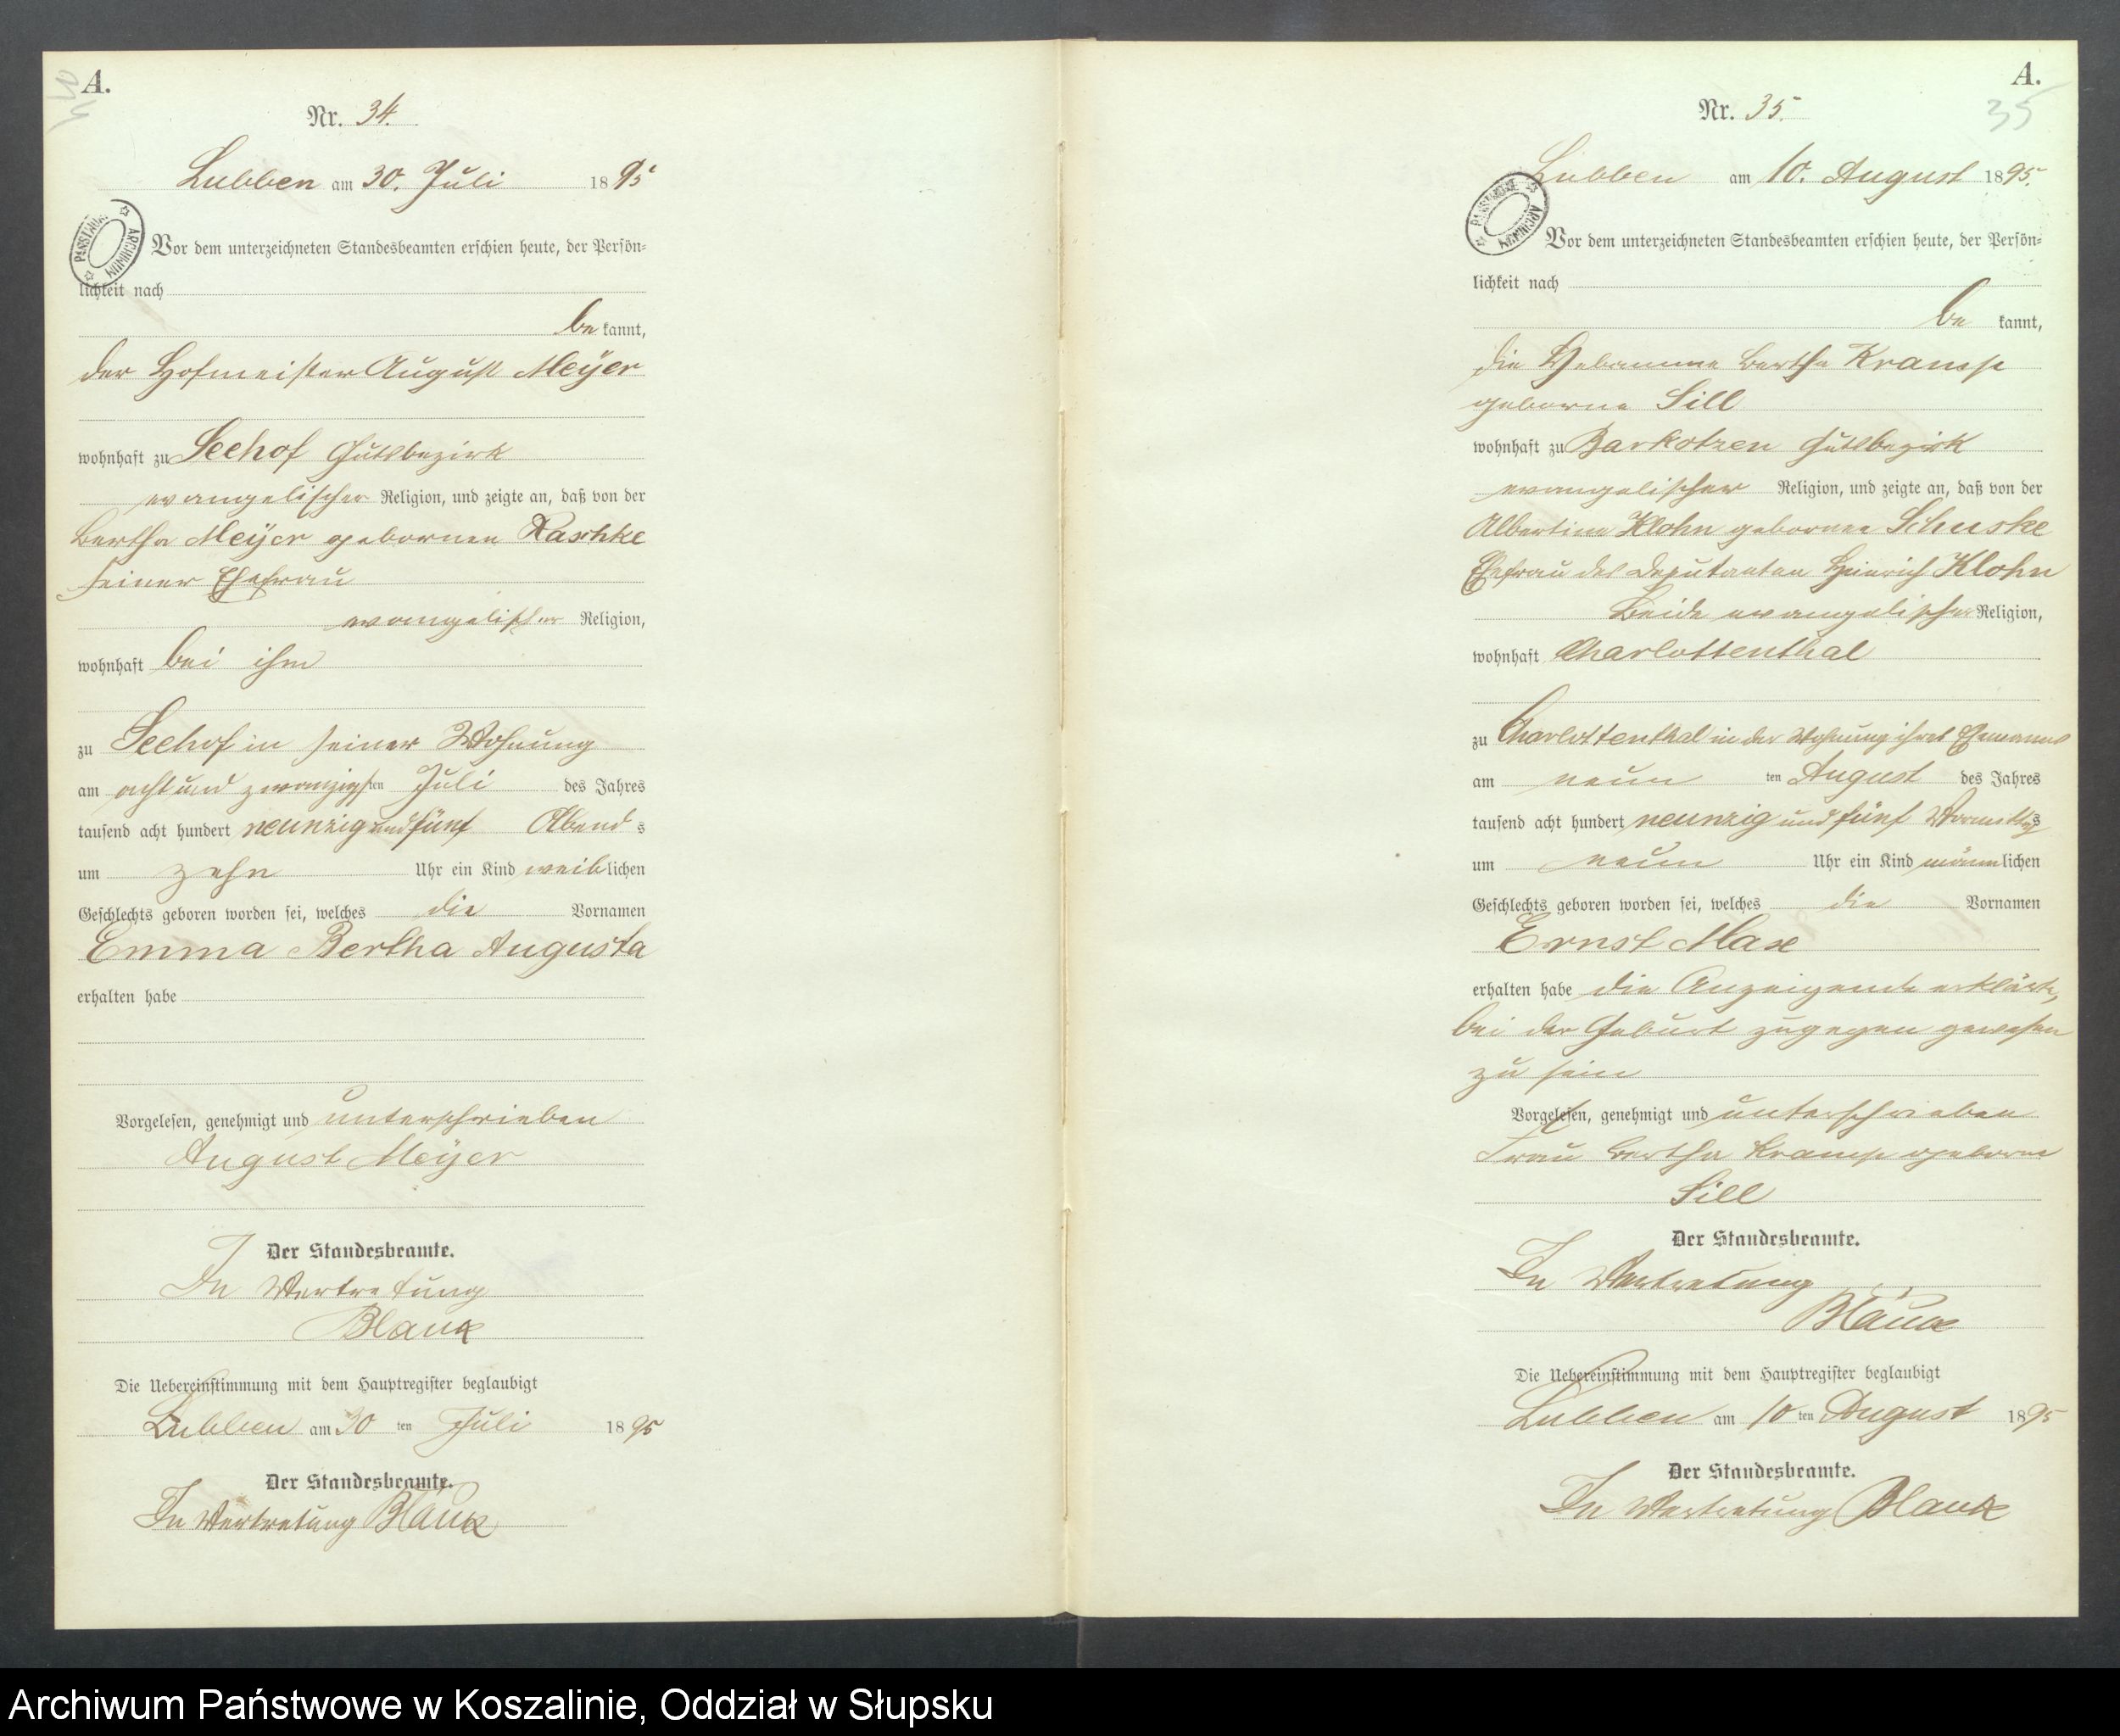 A.
34
Nr. 34.
Lubben am 30. Juli 1895
PAŃSTWOWE ARCHIWUM
Vor dem unterzeichneten Standesbeamten erschien heute, der Persön-
lichkeit nach
be kannt,
der Hofmeister August Meÿer
wohnhaft zu Seehof Gutsbezirk
evangelischer Religion, und zeigte an, daß von der
Bertha Meÿer gebornen Raschke
seiner Ehefrau
evangelischer Religion,
wohnhaft bei ihm
zu Seehof in seiner Wohnung
am acht und zwanzigsten Juli des Jahres
tausend acht hundert neunzig und fünf Abends
um zehn Uhr ein Kind weiblichen
Geschlechts geboren worden sei, welches die Vornamen
Emma Bertha Augusta
erhalten habe
Vorgelesen, genehmigt und unterschrieben
August Meÿer
Der Standesbeamte.
In Vertretung
Die Uebereinstimmung mit dem Hauptregister beglaubigt
Lubben am 30 ten Juli 1895
Der Standesbeamte.
In Vertretung
A.
35
Nr. 35.
Lubben am 10. August 1895.
PAŃSTWOWE ARCHIWUM
Vor dem unterzeichneten Standesbeamten erschien heute, der Persön-
lichkeit nach
be kannt,
die Hebamme Bertha Kramp
geborne Sill
wohnhaft zu Barkotzen Gutsbezirk
evangelischer Religion, und zeigte an, daß von der
Albertine Klohn gebornen Schuske
Ehefrau des Deputanten Heinrich Klohn
Beide evangelischer Religion,
wohnhaft Charlottenthal
zu Charlottenthal in der Wohnung ihres Ehemannes
am neun ten August des Jahres
tausend acht hundert neunzig und fünf Vormittags
um neun Uhr ein Kind männlichen
Geschlechts geboren worden sei, welches die Vornamen
Ernst Max
erhalten habe die Anzeigende erklärte,
bei der Geburt zugegen gewesen
zu sein
Vorgelesen, genehmigt und unterschrieben
Frau Bertha Kramp geborne
Sill
Der Standesbeamte.
In Vertretung
Die Uebereinstimmung mit dem Hauptregister beglaubigt
Lubben am 10 ten August 1895
Der Standesbeamte.
In Vertretung
Archiwum Państwowe w Koszalinie, Oddział w Słupsku